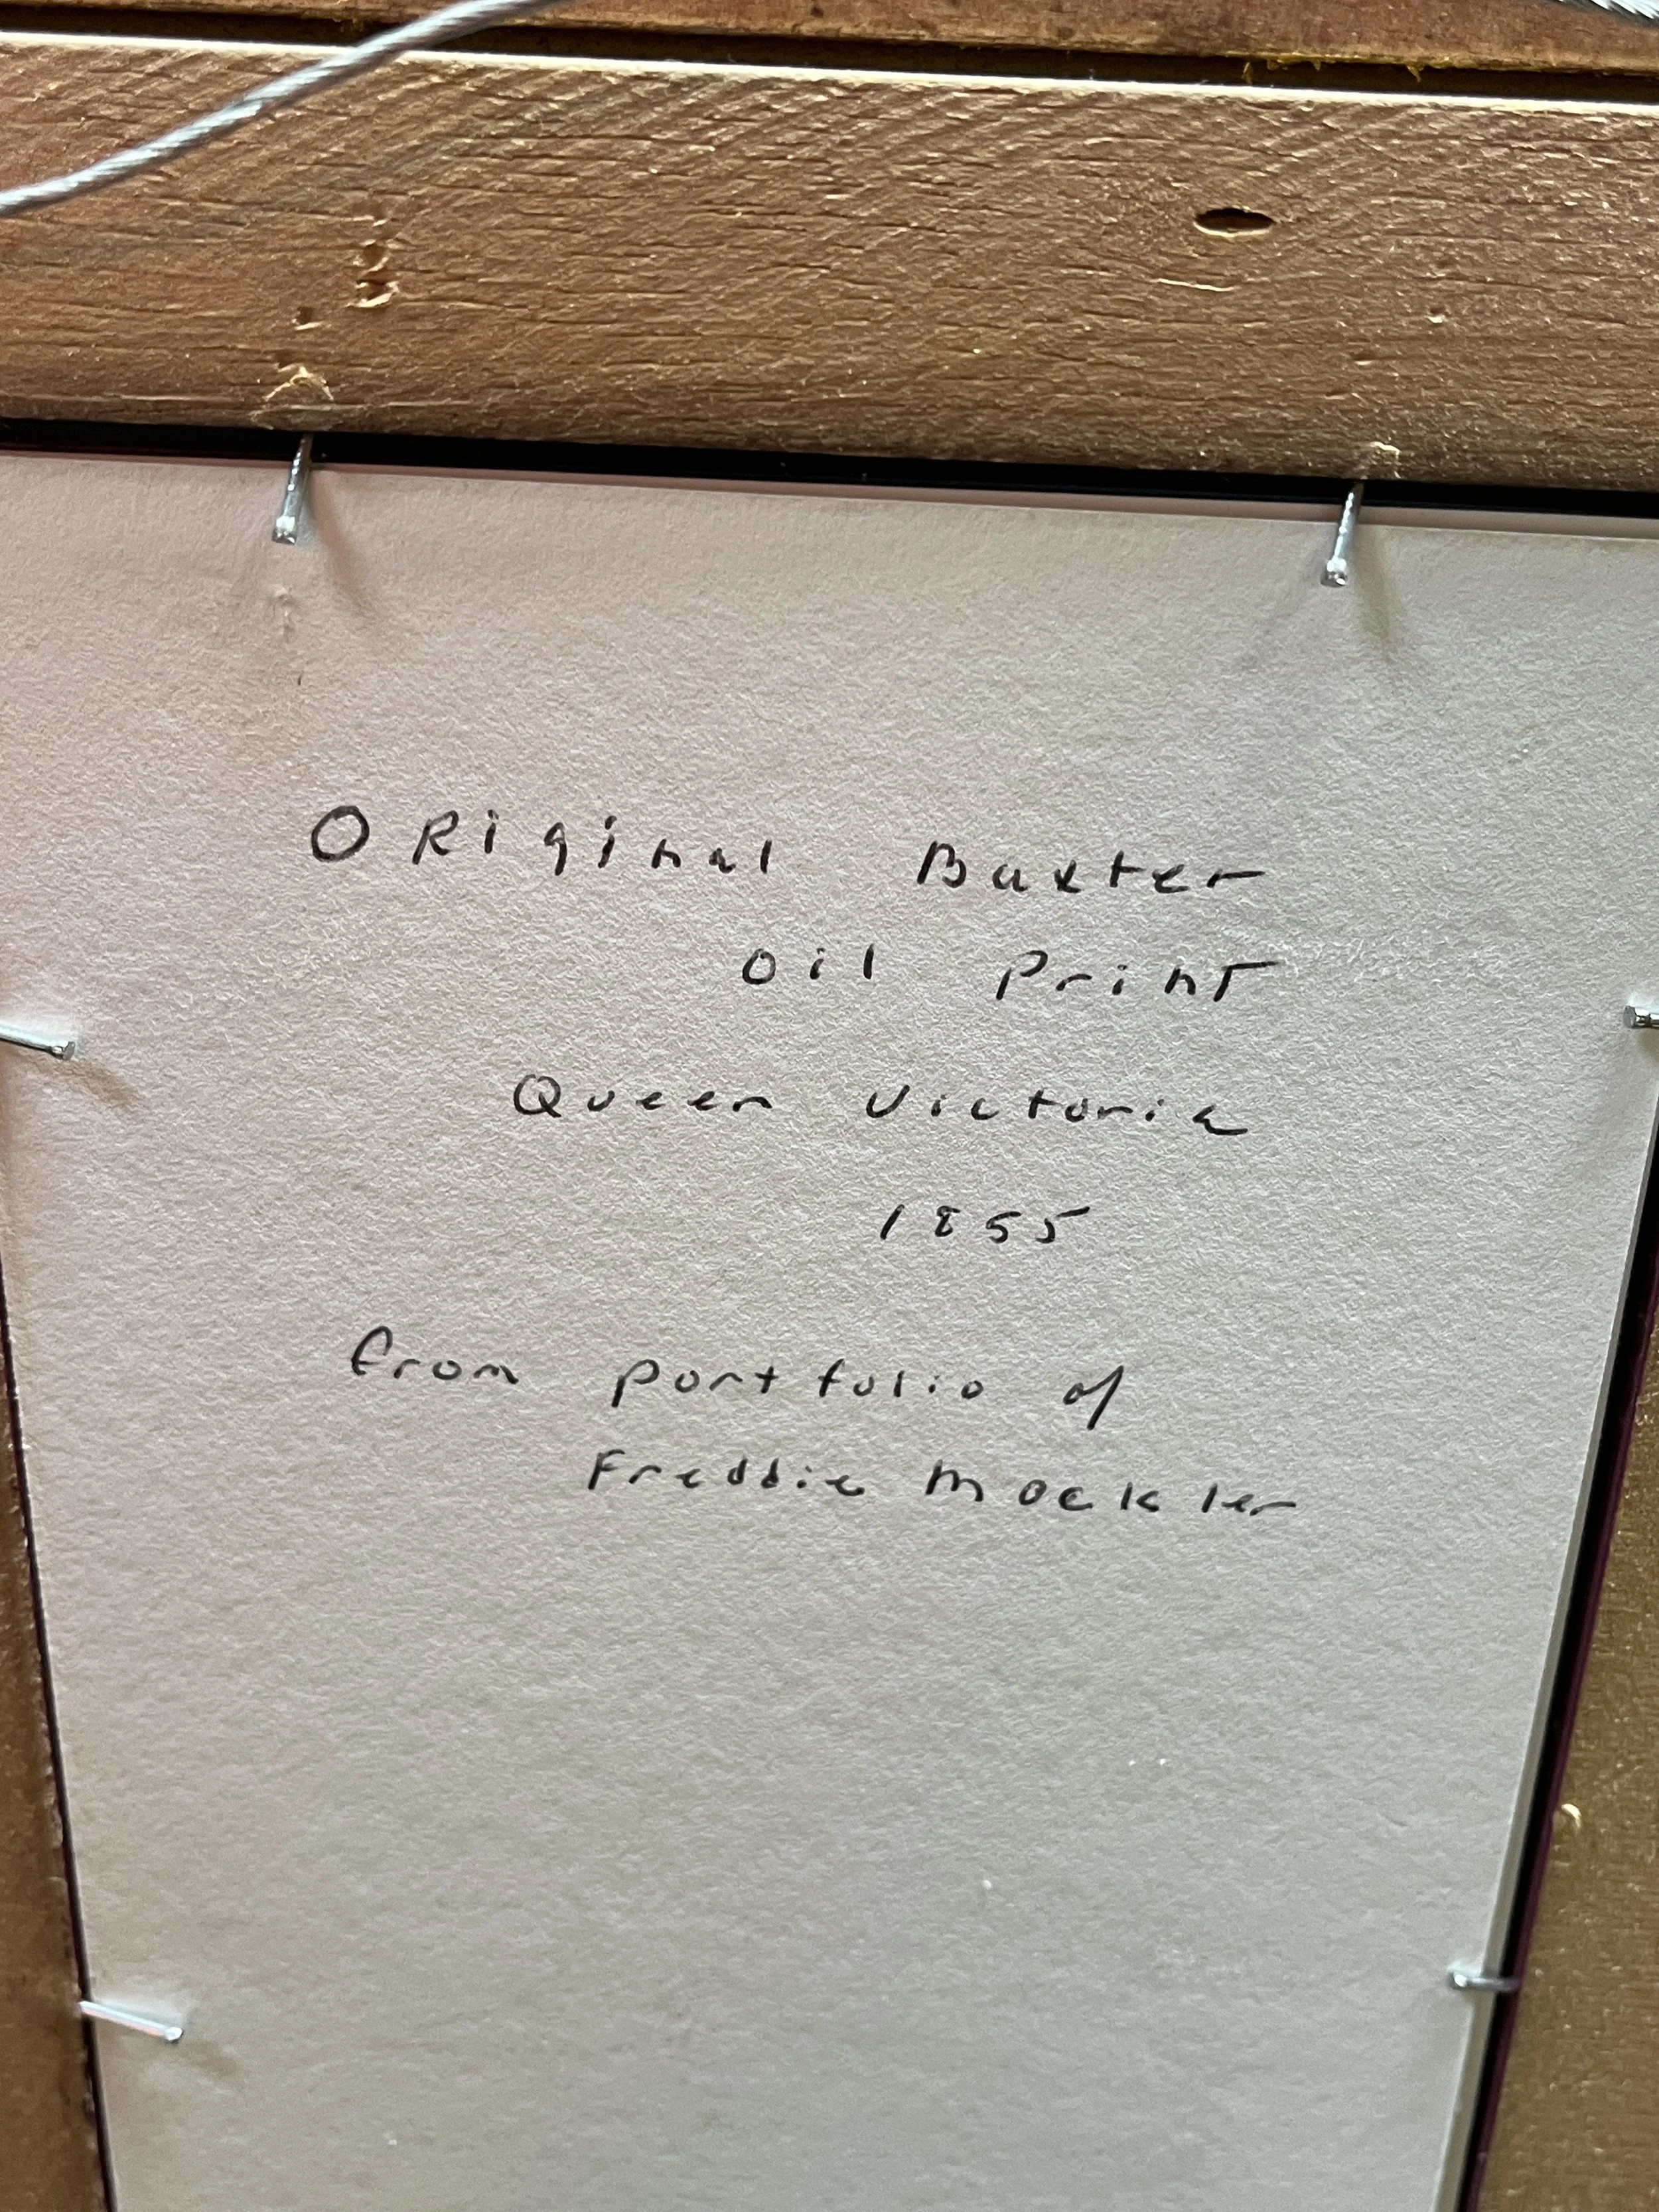 Original Baxter
oil Print
Queen Victoria
1855
from portfolio of
Freddie Mockler